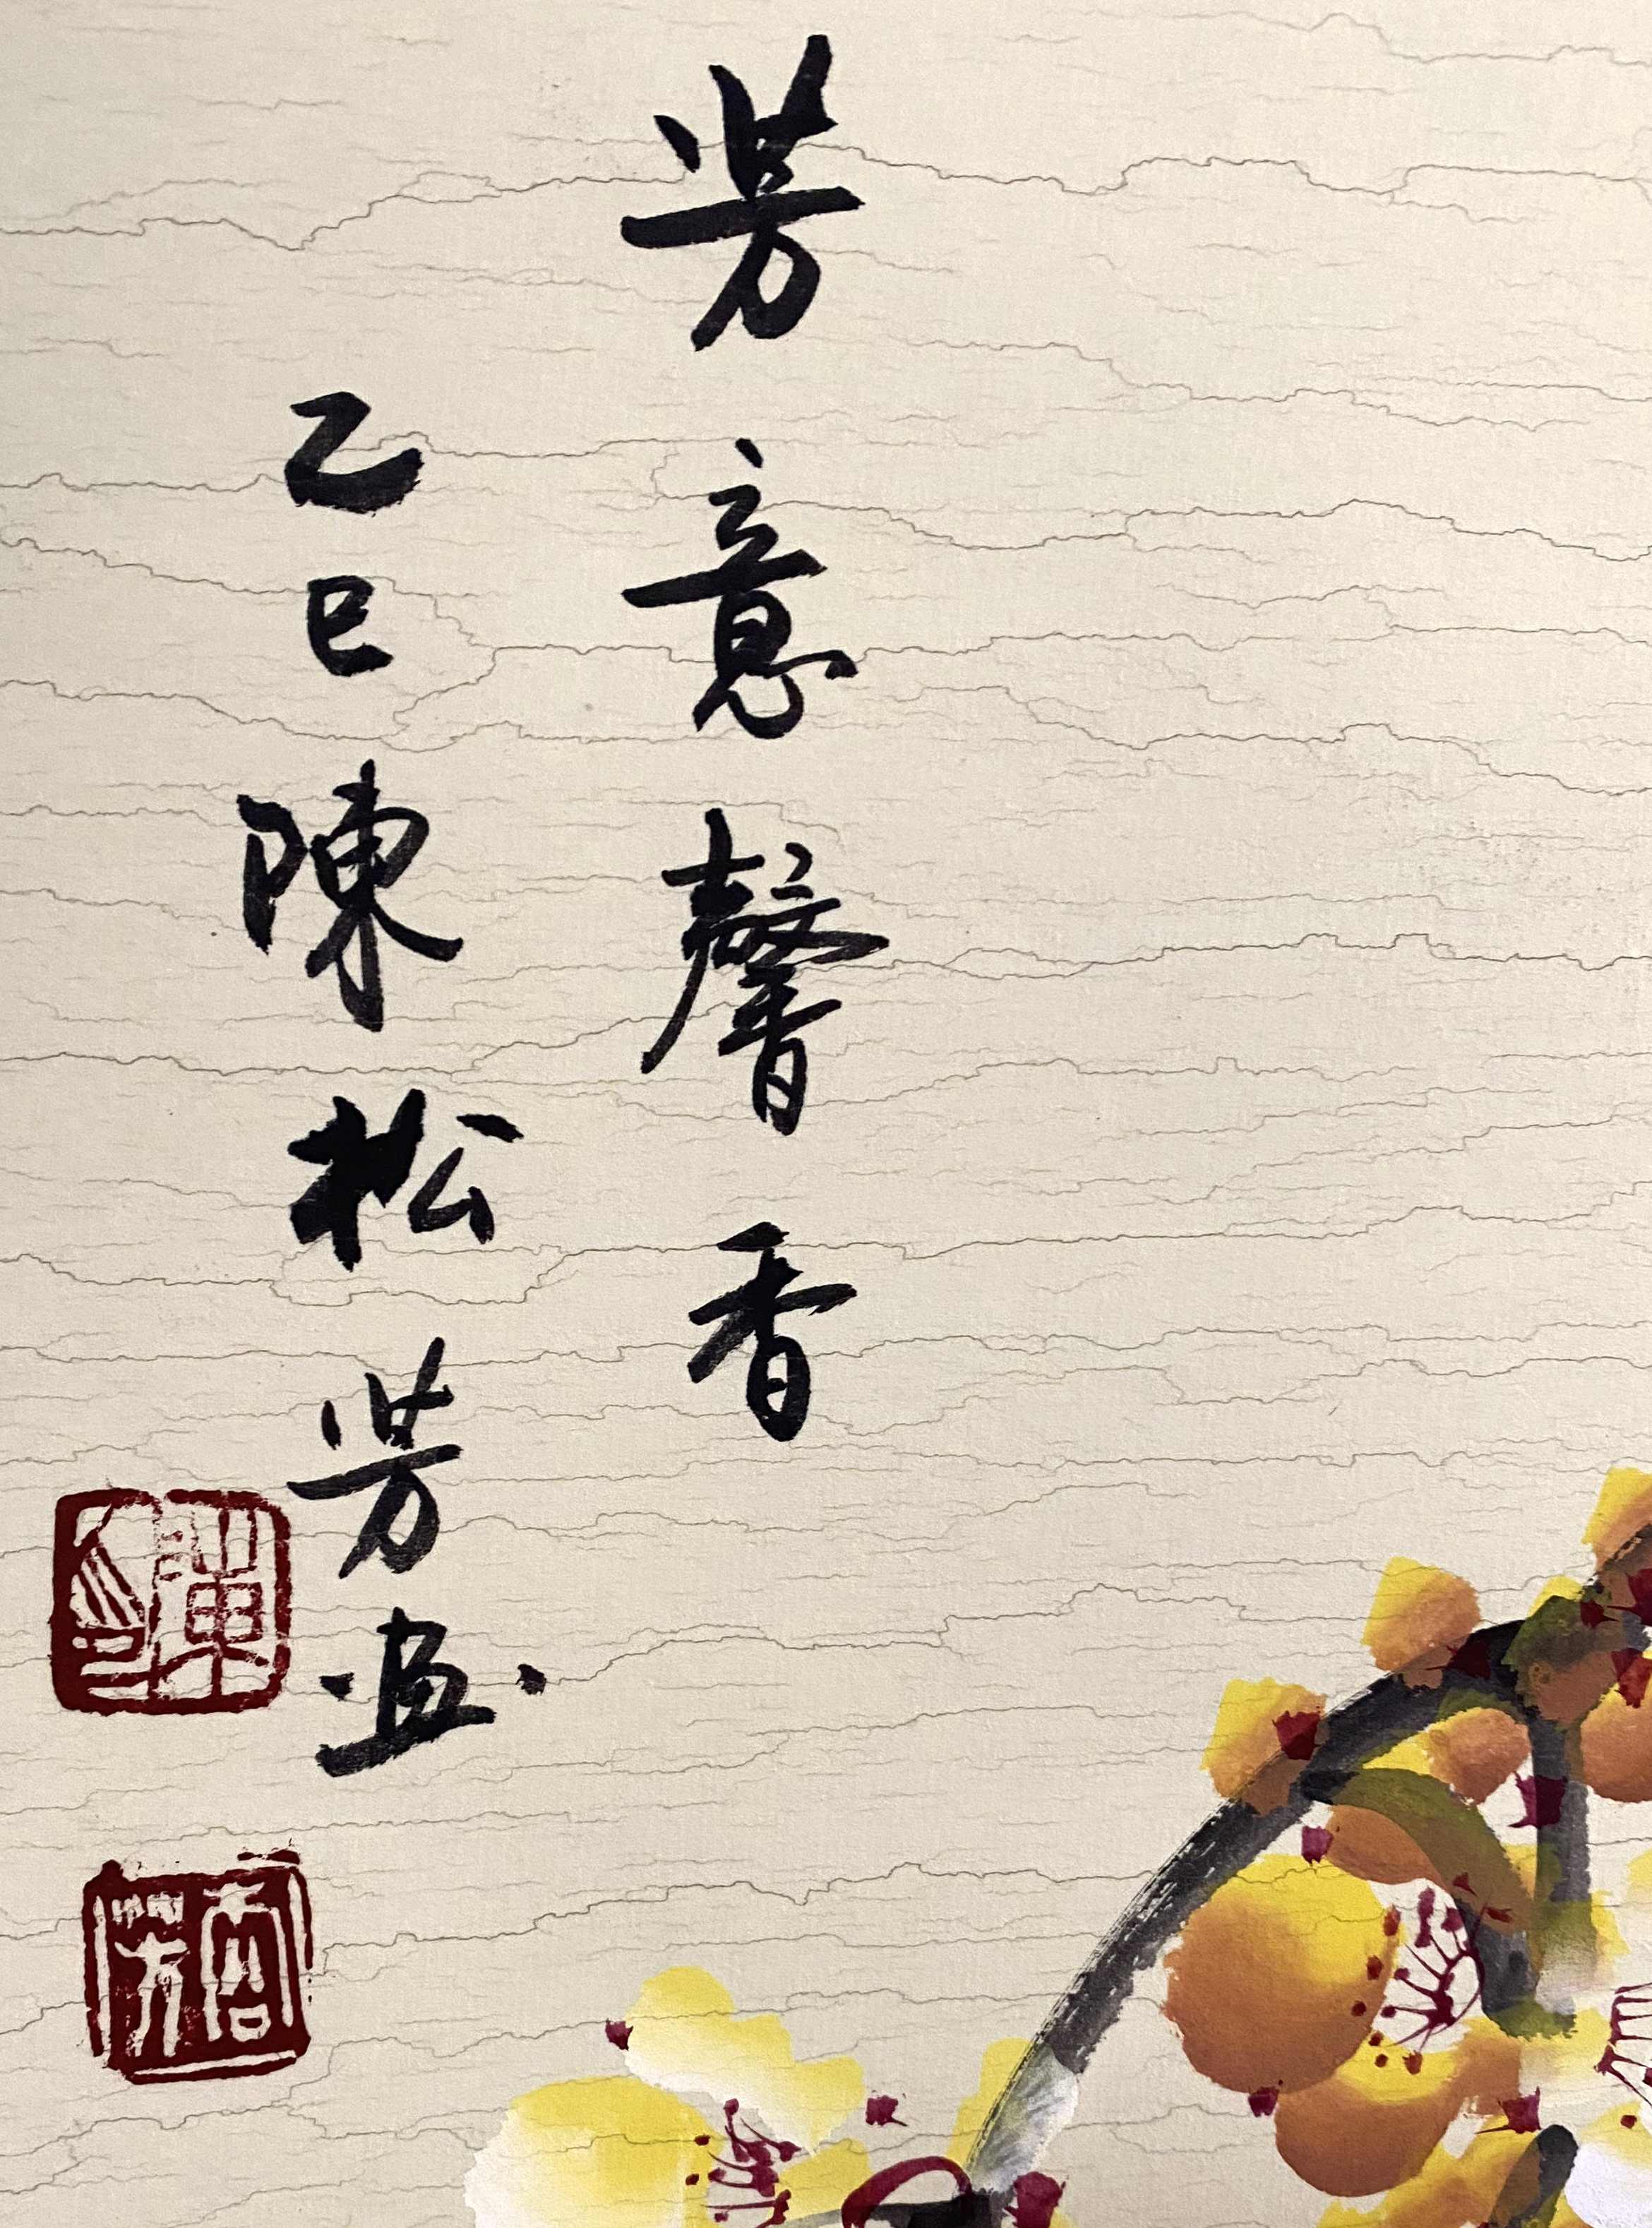 芳意馨香
乙巳陳松芳画